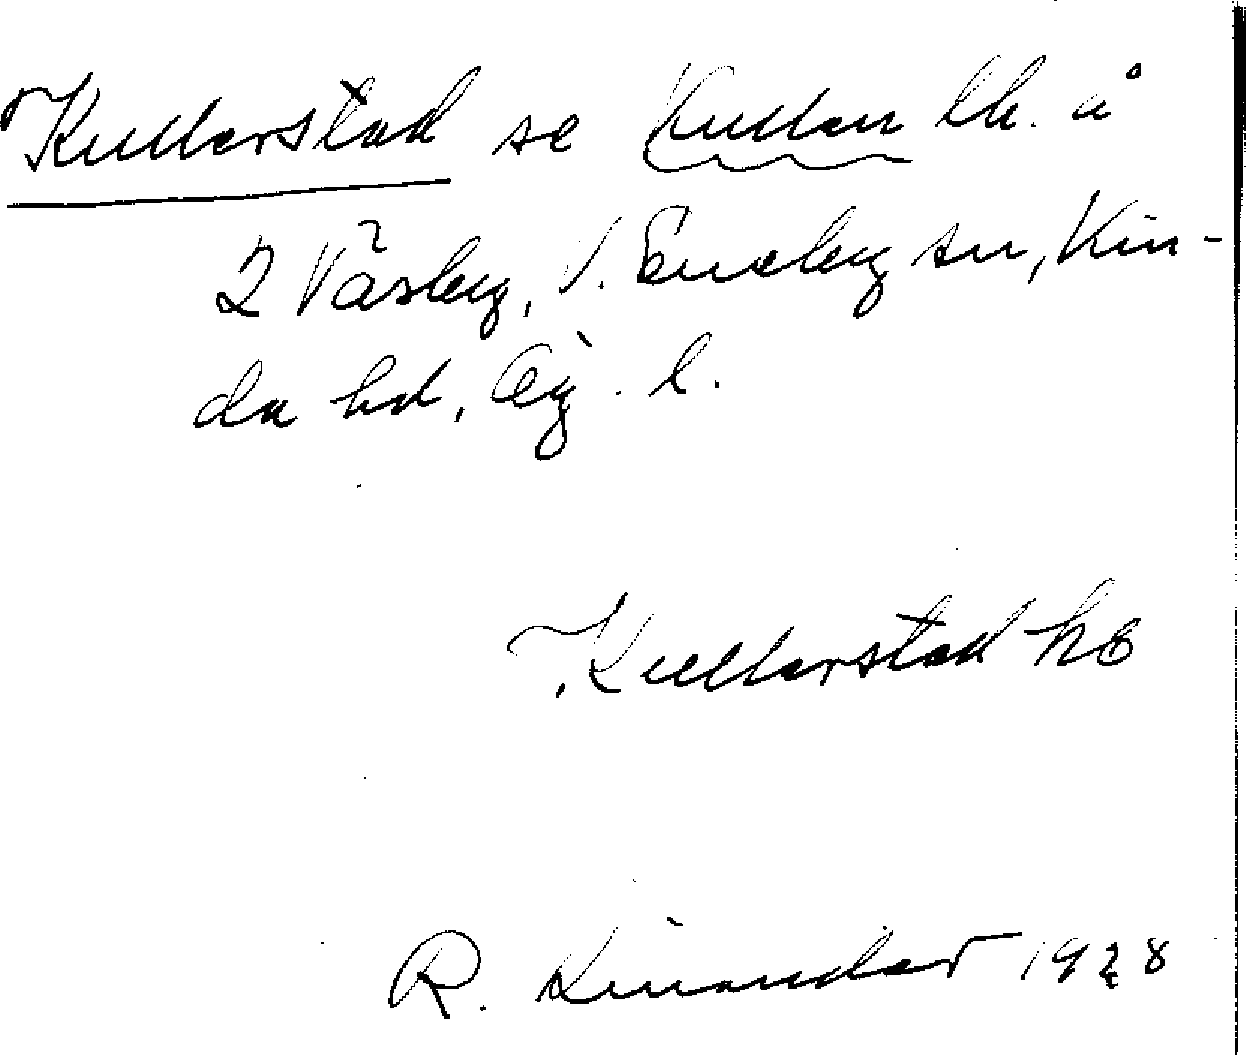 Kullerstad se Kullen lh. å
2 Våsberg, V. Eneby sn, Kin-
da hd, Ög. l.
Kullerstad hö
R. Kinander 1928